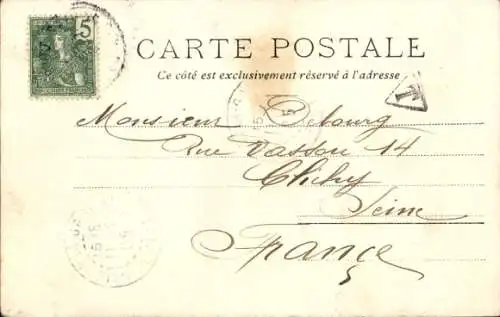 5
CARTE POSTALE
Ce côté est exclusivement réservé à l'adresse
T
Monsieur Debourg
Rue Vasson 14
Clichy
Seine
France